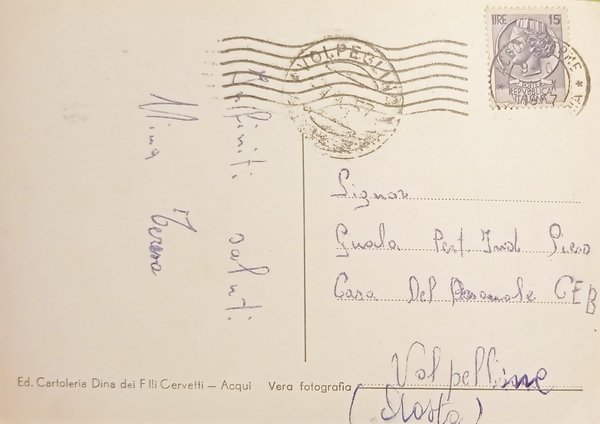 LIRE 15
REPUBBLICA
ITALIANA
Infiniti saluti
Nina Teresa
Signor
Guala Per. Ind. Piero
Casa Del Personale CEB
Valpelline
(Aosta)
Ed. Cartoleria Dina dei F lli Cervetti — Acqui Vera fotografia